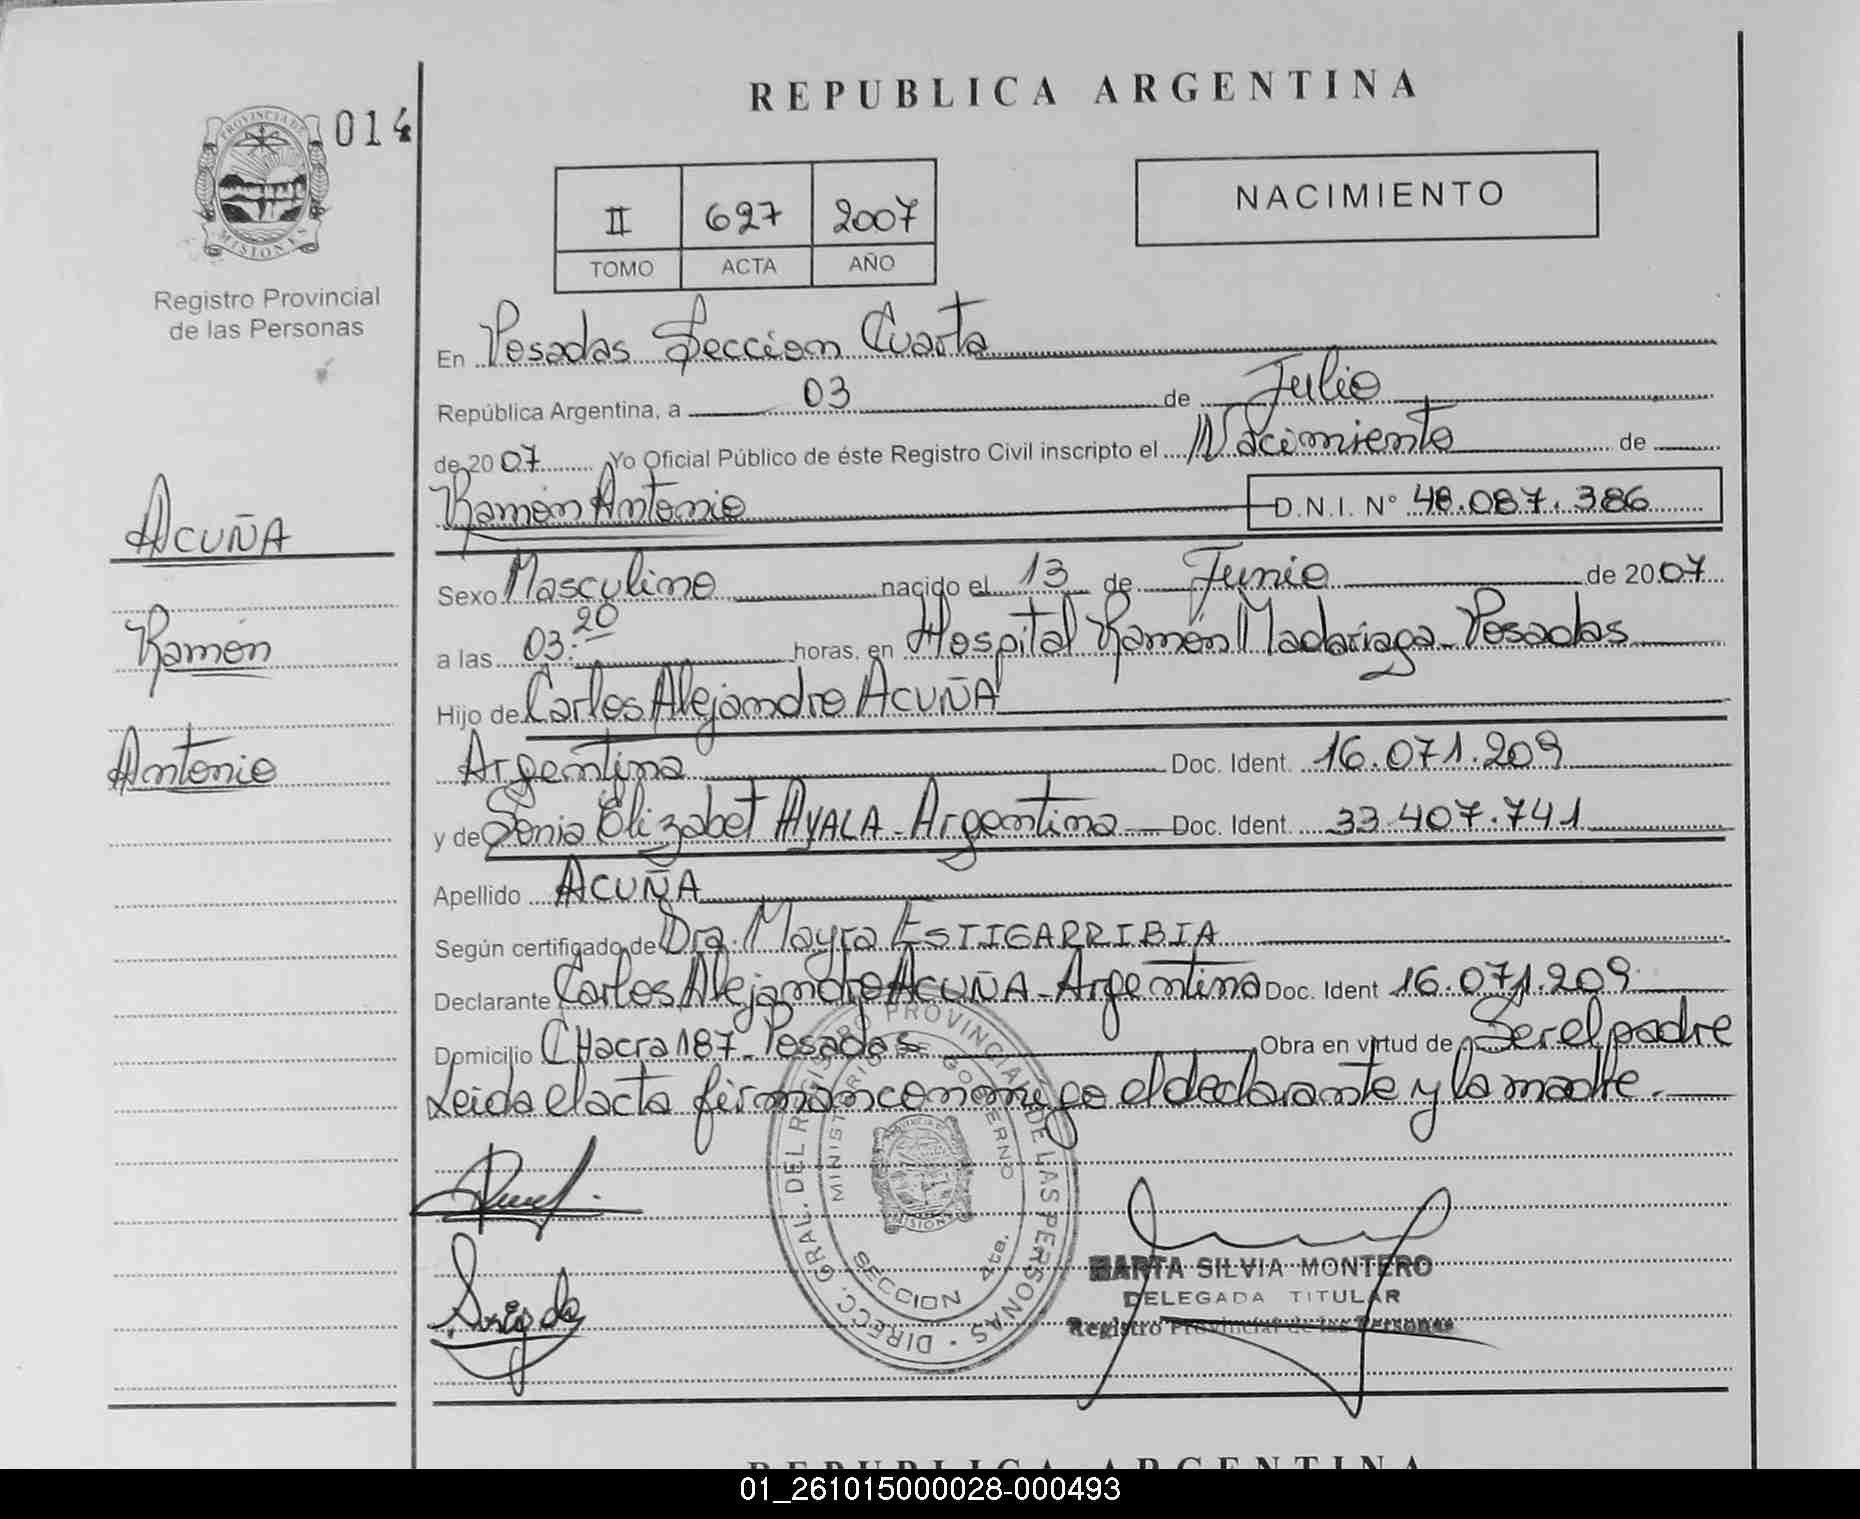 REPUBLICA ARGENTINA
PROVINCIA DE MISIONES
014
Registro Provincial
de las Personas
II 627 2007
TOMO ACTA AÑO
NACIMIENTO
En Posadas Seccion Cuarta
República Argentina, a 03 de Julio
de 2007 Yo Oficial Público de éste Registro Civil inscripto el Nacimiento de
Ramón Antonio D.N.I. N° 48.087.386
ACUÑA
Ramón
Antonio
Sexo Masculino nacido el 13 de Junio de 2007
a las 03:20 horas, en Hospital Ramón Madariaga - Posadas
Hijo de Carlos Alejandro ACUÑA
Argentina Doc. Ident. 16.071.209
y de Sonia Elizabet AYALA - Argentina Doc. Ident. 33.407.741
Apellido ACUÑA
Según certificado de Dra. Mayra ESTIGARRIBIA
Declarante Carlos Alejandro ACUÑA - Argentina Doc. Ident 16.071.209
Domicilio CHacra 187 - Posadas Obra en virtud de Ser el padre
Leida el acta firman conmigo el declarante y la madre.
DIRECC. GRAL. DEL REGISTRO PROVINCIAL DE LAS PERSONAS
MINISTERIO DE GOBIERNO
SECCION 4ta.
MARTA SILVIA MONTERO
DELEGADA TITULAR
Registro Provincial de las Personas
REPUBLICA ARGENTINA
01_261015000028-000493